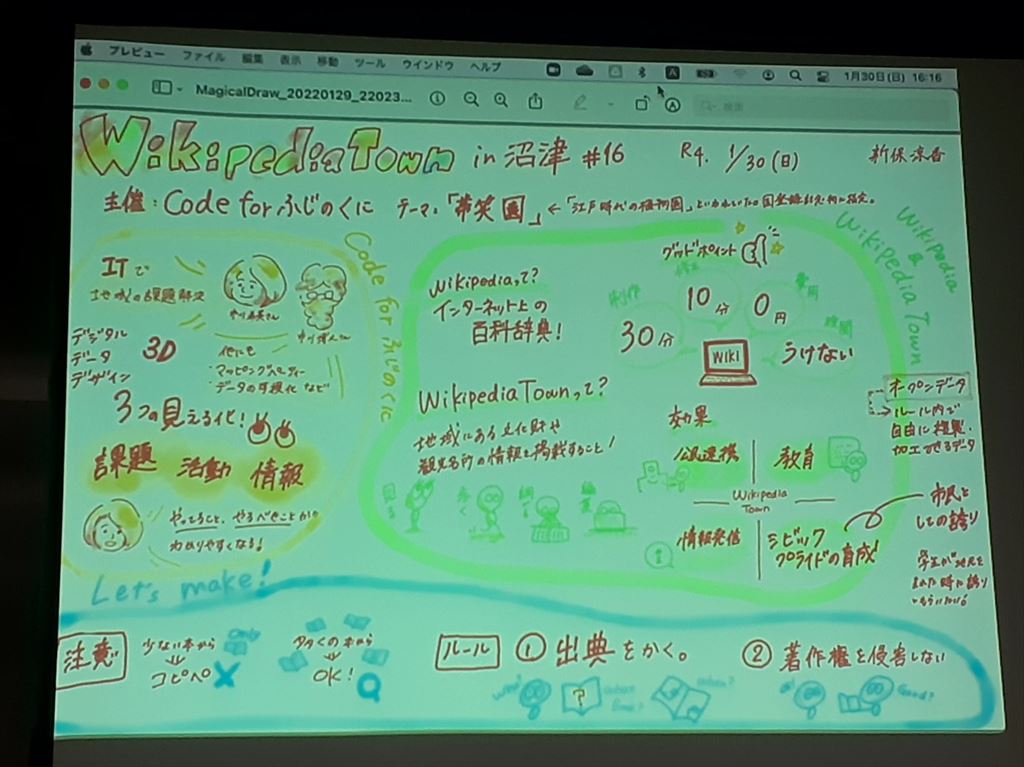 プレビュー ファイル 編集 表示 移動 ツール ウインドウ ヘルプ
1月30日(日) 16:16
MagicalDraw_20220129_22023...
検索
WikipediaTown in 沼津 #16 R4. 1/30(日) 新保涼香
主催:Code for ふじのくに テーマ:「帯笑園」←「江戸時代の植物園」といわれていた
Code for ふじのくに
ITで
地域の課題解決
デジタル
データ
デザイン
3D
他にも
・マッピングパーティー
・データの可視化 など
3つの見える化!
課題 活動 情報
やってること、やるべきことが
わかりやすくなる!
Wikipedia
&
Wikipedia Town
Wikipediaって?
インターネット上の
百科辞典!
グッドポイント
制作
30分
修正
10分
費用
0円
制限
うけない
WIKI
WikipediaTownって?
地域にある文化財や
観光名所の情報を掲載すること!
見る 歩く 調べ 編集
効果
公民連携
教育
Wikipedia
Town
情報発信
シビック
プライドの育成!
オープンデータ
→ルール内で
自由に複製・
加工できるデータ
市民と
しての誇り
Let's make!
注意
少ない本から
コピペ
多くの本から
OK!
ルール
① 出典をかく。
② 著作権を侵害しない
Who?
?
When?
Good?